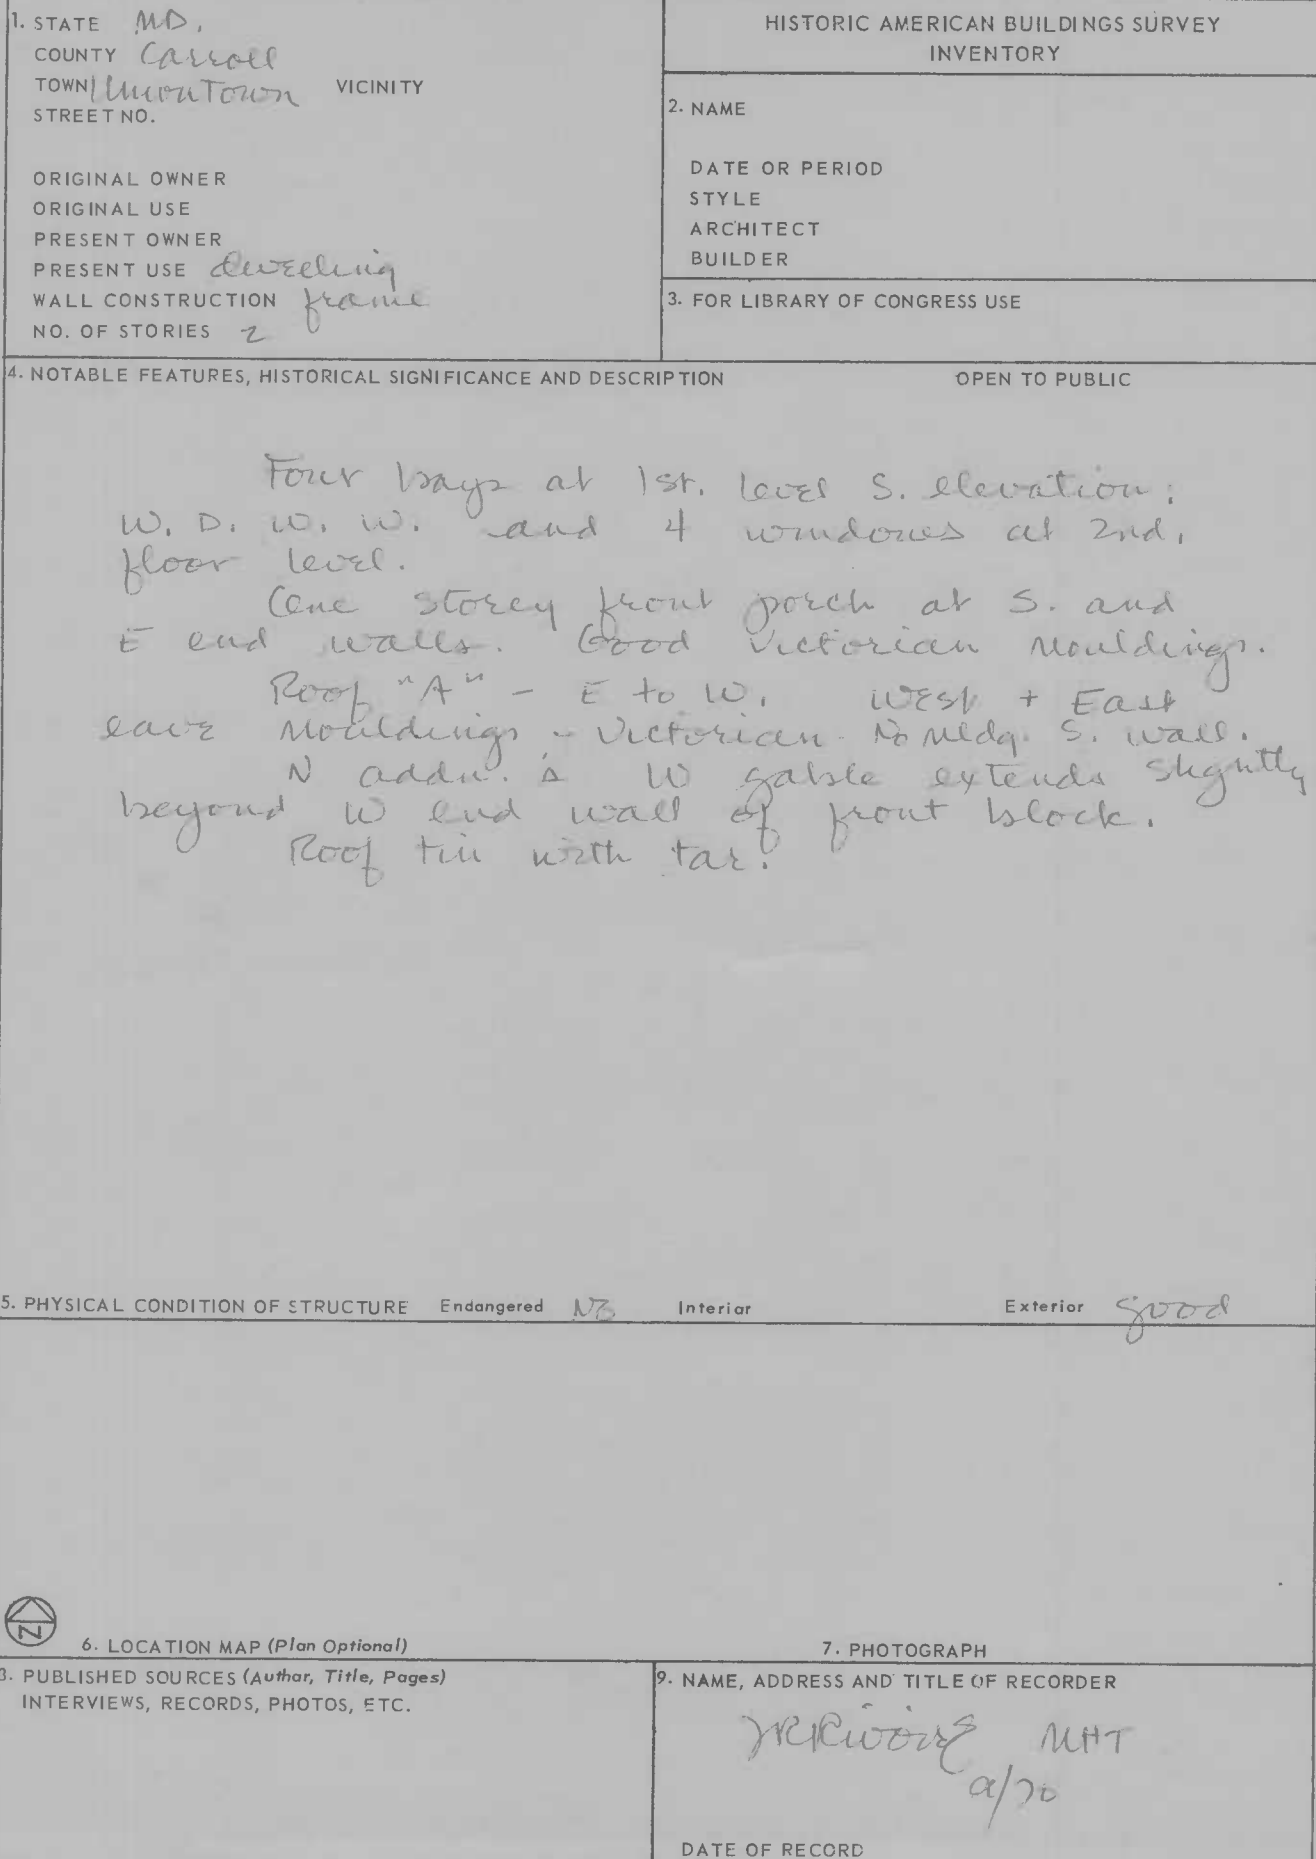 1. STATE MD.
COUNTY Carroll
TOWN Uniontown VICINITY
STREET NO.
ORIGINAL OWNER
ORIGINAL USE
PRESENT OWNER
PRESENT USE dwelling
WALL CONSTRUCTION frame
NO. OF STORIES 2
HISTORIC AMERICAN BUILDINGS SURVEY
INVENTORY
2. NAME
DATE OR PERIOD
STYLE
ARCHITECT
BUILDER
3. FOR LIBRARY OF CONGRESS USE
4. NOTABLE FEATURES, HISTORICAL SIGNIFICANCE AND DESCRIPTION OPEN TO PUBLIC
Four bays at 1st. level S. elevation:
W. D. W. W. and 4 windows at 2nd.
floor level.
One storey front porch at S. and
E end walls. Good Victorian Mouldings.
Roof "A" - E to W. West + East
eave Mouldings - Victorian. No mldg. S. wall.
N addn. 's W gable extends slightly
beyond W end wall of front block.
Roof tin with tar.
5. PHYSICAL CONDITION OF STRUCTURE Endangered No Interior Exterior good
N
6. LOCATION MAP (Plan Optional)
7. PHOTOGRAPH
8. PUBLISHED SOURCES (Author, Title, Pages)
INTERVIEWS, RECORDS, PHOTOS, ETC.
9. NAME, ADDRESS AND TITLE OF RECORDER
MHT
/70
DATE OF RECORD